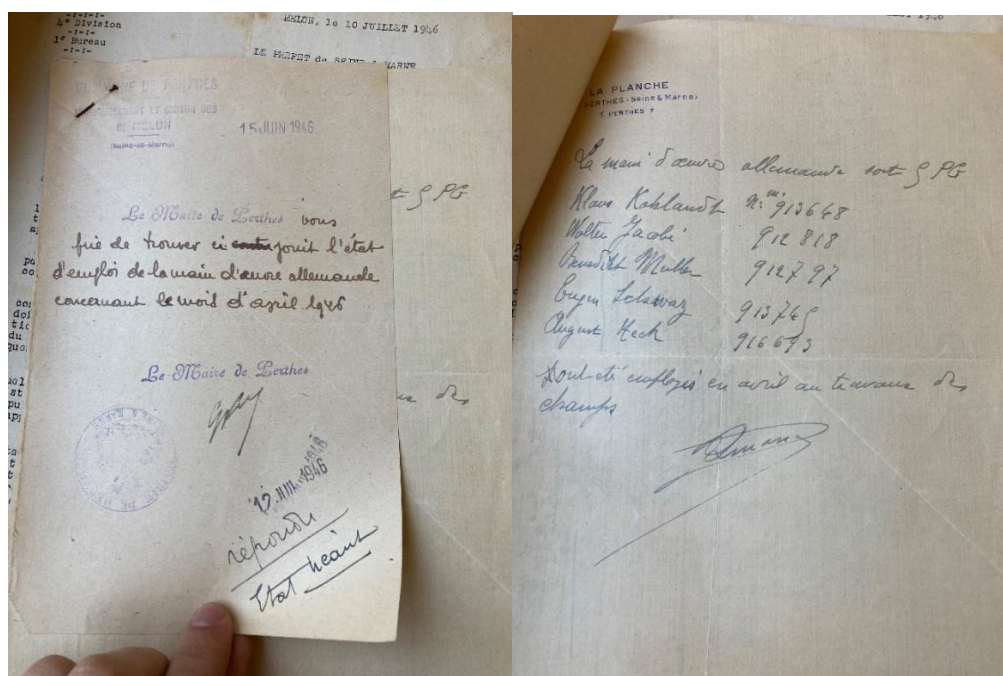 4e Division
-:-:-
1e Bureau
-:-:-
MELUN, le 10 JUILLET 1946
LE PREFET de SEINE & MARNE
DE PERTHES
ET CANTON SUD
de MELUN
(Seine-et-Marne)
15 JUIN 1946
Le Maire de Perthes vous
prie de trouver ci joint l'état
d'emploi de la main d'œuvre allemande
concernant le mois d'april 1946
Le Maire de Perthes
JUIL 1946
répondu
Etat néant
5 PG
des
LA PLANCHE
PERTHES (Seine & Marne)
T. PERTHES 7
La main d'œuvre allemande soit 5 PG
Klaus Kohlandt n° mi 913648
Walter Jacobi 912818
Benedikt Muller 912797
Eugen Schwaz 913745
August Heck 916693
Dont été employés en avril au travaux des
champs